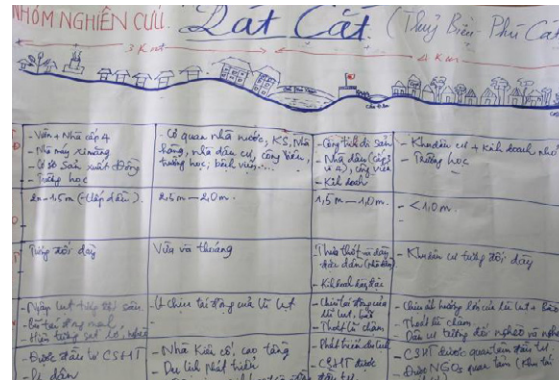 NHÓM NGHIÊN CỨU
Lát Cắt (Thuỷ Biều - Phú Cát
3 Km 4 Km
- Vườn + Nhà cấp 4
- Nhà máy xi măng
- Cơ sở sản xuất đồng
- Trường học
- Cơ quan nhà nước, KS, Nhà
hàng, nhà dân cư, công viên,
trường học, bệnh viện,...
- Công tích di sản
- Nhà dân (cấp 3
4), công viên
- Kinh doanh
- Khu dân cư + kinh doanh nhỏ
- Trường học
2m - 1,5m (thấp dần).
2,5m - 2,0m.
1,5m - 1,0m.
- < 1,0m.
Tương đối dày
Vừa và thoáng
Thưa thớt và dày
- Khu dân cư tương đối dày
- Ngập lụt tương đối sâu
- Ít chịu tác động của lũ lụt
- Chịu tác động của
lũ lụt,
- Thoát lũ chậm
- Chịu ảnh hưởng lớn của lũ lụt + Bão
- Thoát lũ chậm
- Dân cư tương đối nghèo và
- Được đầu tư CSHT
- Nhà kiên cố, cao tầng
- Du lịch phát triển
- Phát triển du lịch
- CSHT được
đầu tư
- CSHT được quan tâm đầu tư.
- Được NGOs quan tâm